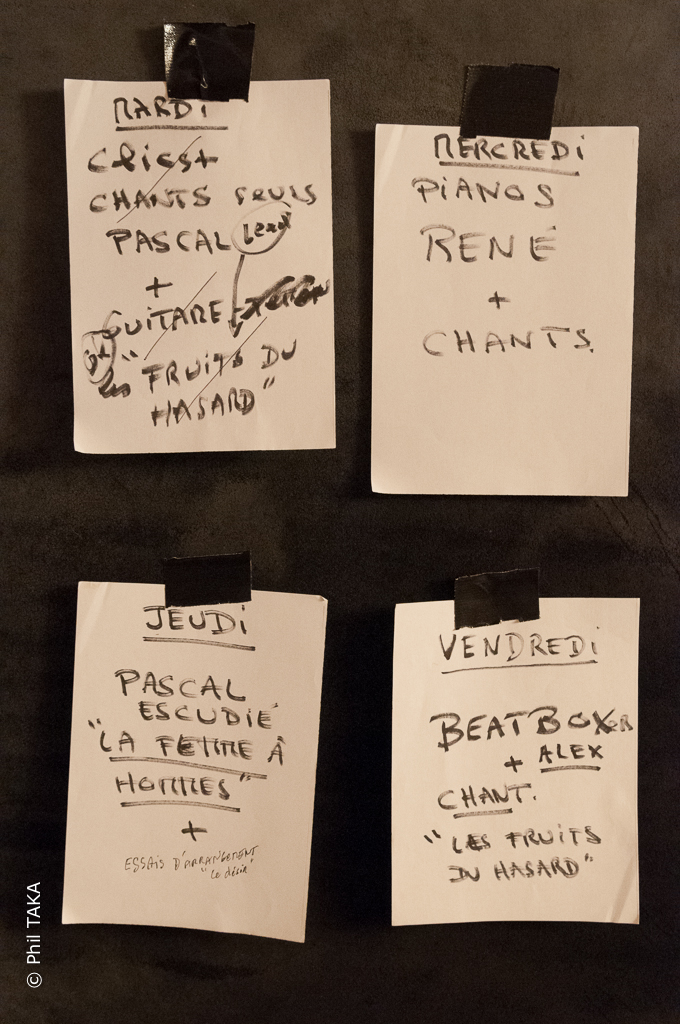 MARDi
Clics+
CHANTS SEULS
PASCAL
+
GUITARE
"FRUiTS DU
HASARD"
MERCREDi
PiANOS
RENÉ
+
CHANTS.
JEUDi
PASCAL
ESCUDiÉ
"LA FEMME À
HOMMES"
+
ESSAiS D'ARRANGEMENT
"Le désir"
VENDREDi
BEATBOXER
+ ALEX
CHANT.
"LES FRUiTS
DU HASARD"
© Phil TAKA